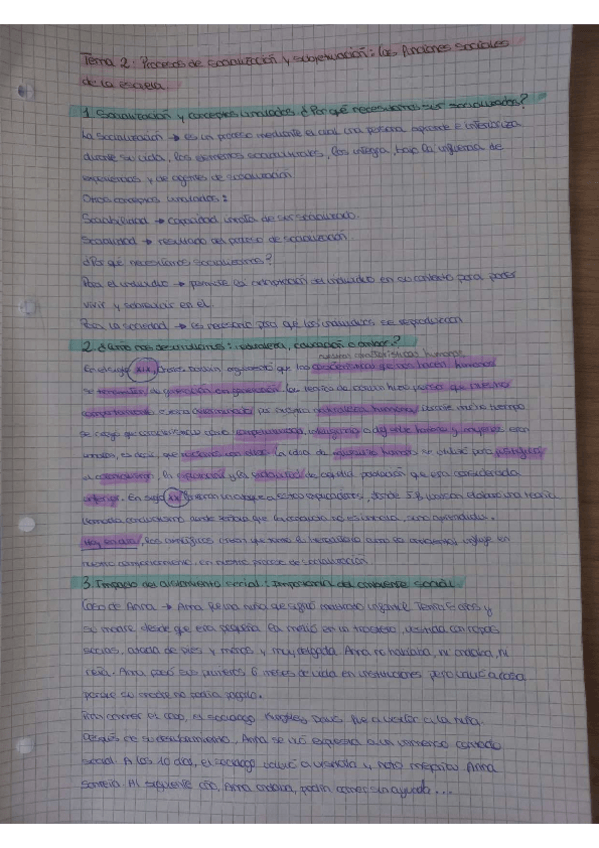 Tema 2: Procesos de socialización y subjetivación: las funciones sociales
de la escuela.
1. Socialización y conceptos vinculados. ¿Por qué necesitamos ser socializados?
La socialización → es un proceso mediante el cual una persona aprende e interioriza
durante su vida, los elementos socioculturales, los integra, bajo la influencia de
experiencias y de agentes de socialización
Otros conceptos vinculados:
Sociabilidad → capacidad innata de ser socializado.
Socialidad → resultado del proceso de socialización.
¿Por qué necesitamos socializarnos?
Para el individuo → permite la orientación del individuo en su contexto para poder
vivir y sobrevivir en él.
Para la sociedad → es necesario para que los individuos se reproduzcan
2. ¿Cómo nos desarrollamos: naturaleza, educación o ambos?
nuestras características humanas
En el siglo XIX, Charles Darwin argumentó que las características que nos hacen humanos
se transmiten de generación en generación. Las teorías de Darwin hizo pensar que nuestro
comportamiento estaba determinado por nuestra naturaleza humana, durante mucho tiempo
se creyó que características como competitividad, inteligencia o algunos hombres y mujeres eran
innatas, es decir, que nacíamos con ellas. La idea de naturaleza humana se utilizó para justificar
el colonialismo, la esclavitud y la de aquella población que era considerada
inferior. En siglo XX pusieron un ataque a estas explicaciones, donde J.B. Watson elaboró una teoría
llamada conductismo donde señala que la conducta no es innata, sino aprendida.
Hoy en día, los científicos creen que tanto la hereditario como el ambiente, influye en
nuestro comportamiento, en nuestro proceso de socialización.
3. Impacto del aislamiento social: Importancia del componente social
Caso de Anna → Anna fue una niña que sufrió maltrato infantil. Tenía 5 años y
su madre, desde que era pequeña la metió en un trastero, vestida con ropas
sucias, atada de pies y manos y muy delgada. Anna no hablaba, ni andaba, ni
reía. Anna pasó sus primeros 6 meses de vida en instituciones pero vuelve a casa
porque su madre no podía pagarlo.
Tras conocer el caso, el sociólogo Kingsley Davis fue a visitar a la niña.
Después de su descubrimiento, Anna se vio expuesta a un inmenso contacto
social. A los 10 días, el sociólogo volvió a visitarla y, notó mejoría. Anna
sonreía. Al siguiente año, Anna andaba, podía comer sin ayuda...